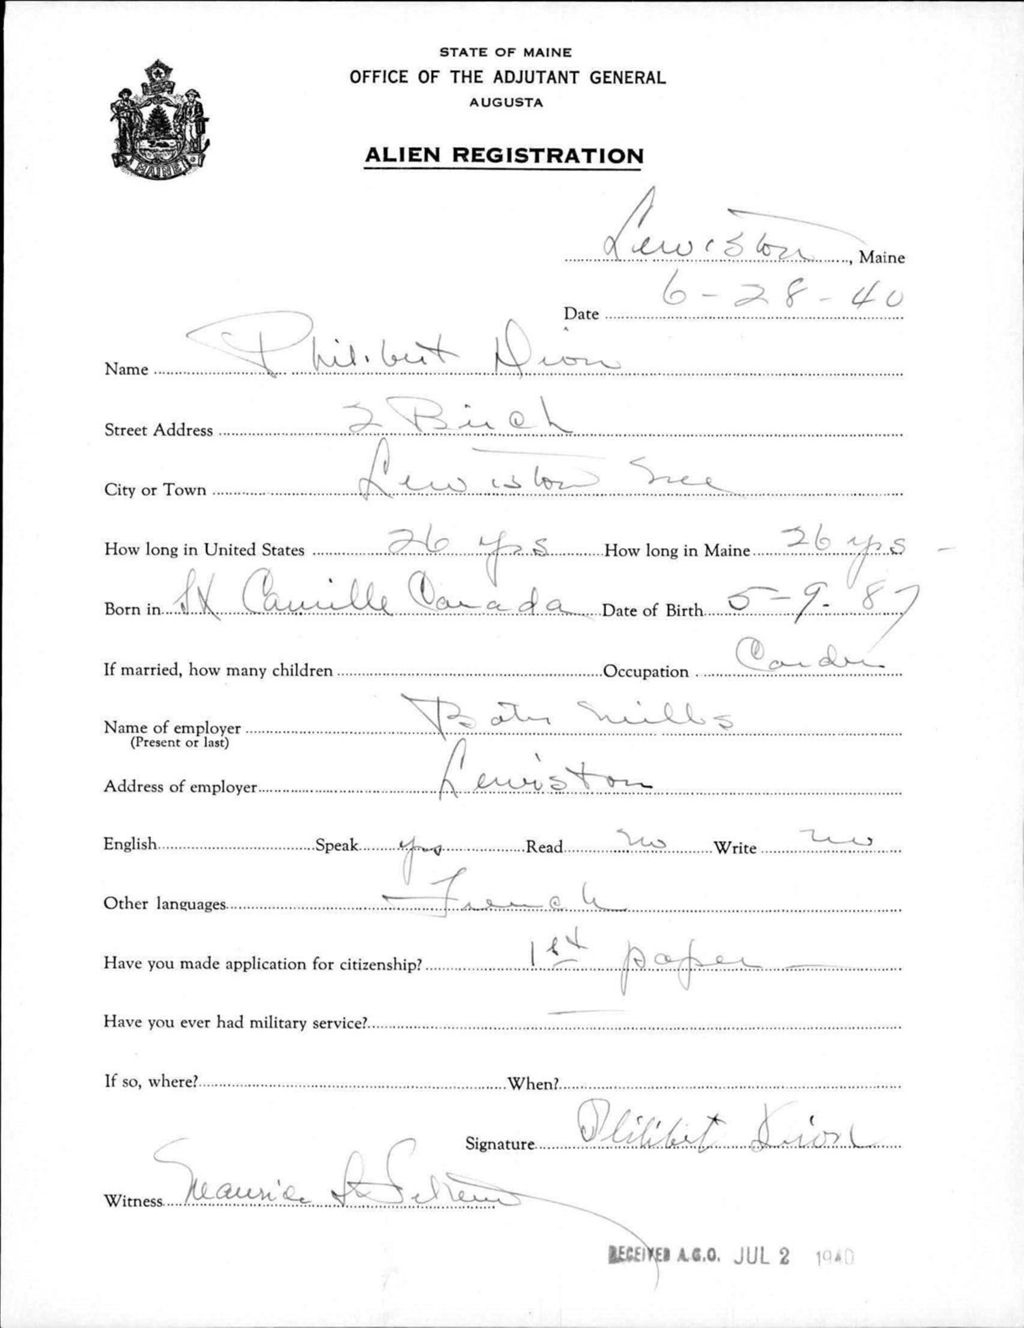 STATE OF MAINE
OFFICE OF THE ADJUTANT GENERAL
AUGUSTA
MAINE
ALIEN REGISTRATION
Lewiston, Maine
Date 6-28-40
Name Philibert Dion
Street Address 2 Birch
City or Town Lewiston Me
How long in United States 26 yrs How long in Maine 26 yrs -
Born in St Camille Canada Date of Birth 5-9-87
If married, how many children Occupation Carder
Name of employer Bates Mills
(Present or last)
Address of employer Lewiston
English Speak yes Read no Write no
Other languages French
Have you made application for citizenship? 1st paper
Have you ever had military service? —
If so, where? When?
Signature Philibert Dion
Witness Maurice
RECEIVED A.G.O. JUL 2 1940